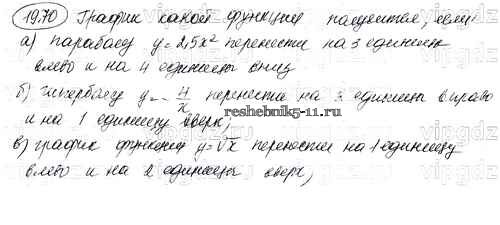 19.70 График какой функции получится, если
а) параболу y=2,5x² перенести на 3 единицы
влево и на 4 единицы вниз
б) гиперболу y=-4/x перенести на 3 единицы вправо
и на 1 единицу вверх;
reshebnik5-11.ru
в) график функции y=√x перенести на 1 единицу
влево и на 2 единицы вверх;